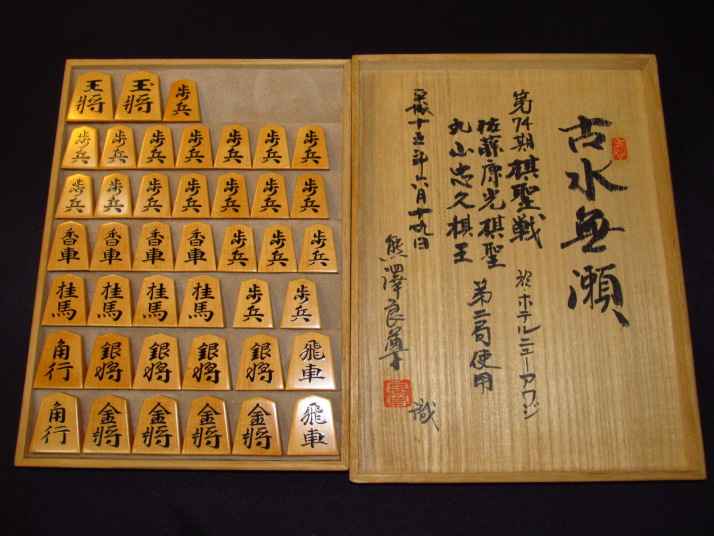 王將 玉將 歩兵
歩兵 歩兵 歩兵 歩兵 歩兵 歩兵 歩兵
歩兵 歩兵 歩兵 歩兵 歩兵 歩兵 歩兵
香車 香車 香車 香車 歩兵 歩兵 歩兵
桂馬 桂馬 桂馬 桂馬 歩兵 歩兵
角行 銀將 銀將 銀將 銀將 飛車
角行 金將 金將 金將 金將 飛車
古水無瀬
第74期棋聖戦 於・ホテルニューアワジ
佐藤康光棋聖
丸山忠久棋王
第二局使用
平成十五年六月十九日
熊澤良尊
識